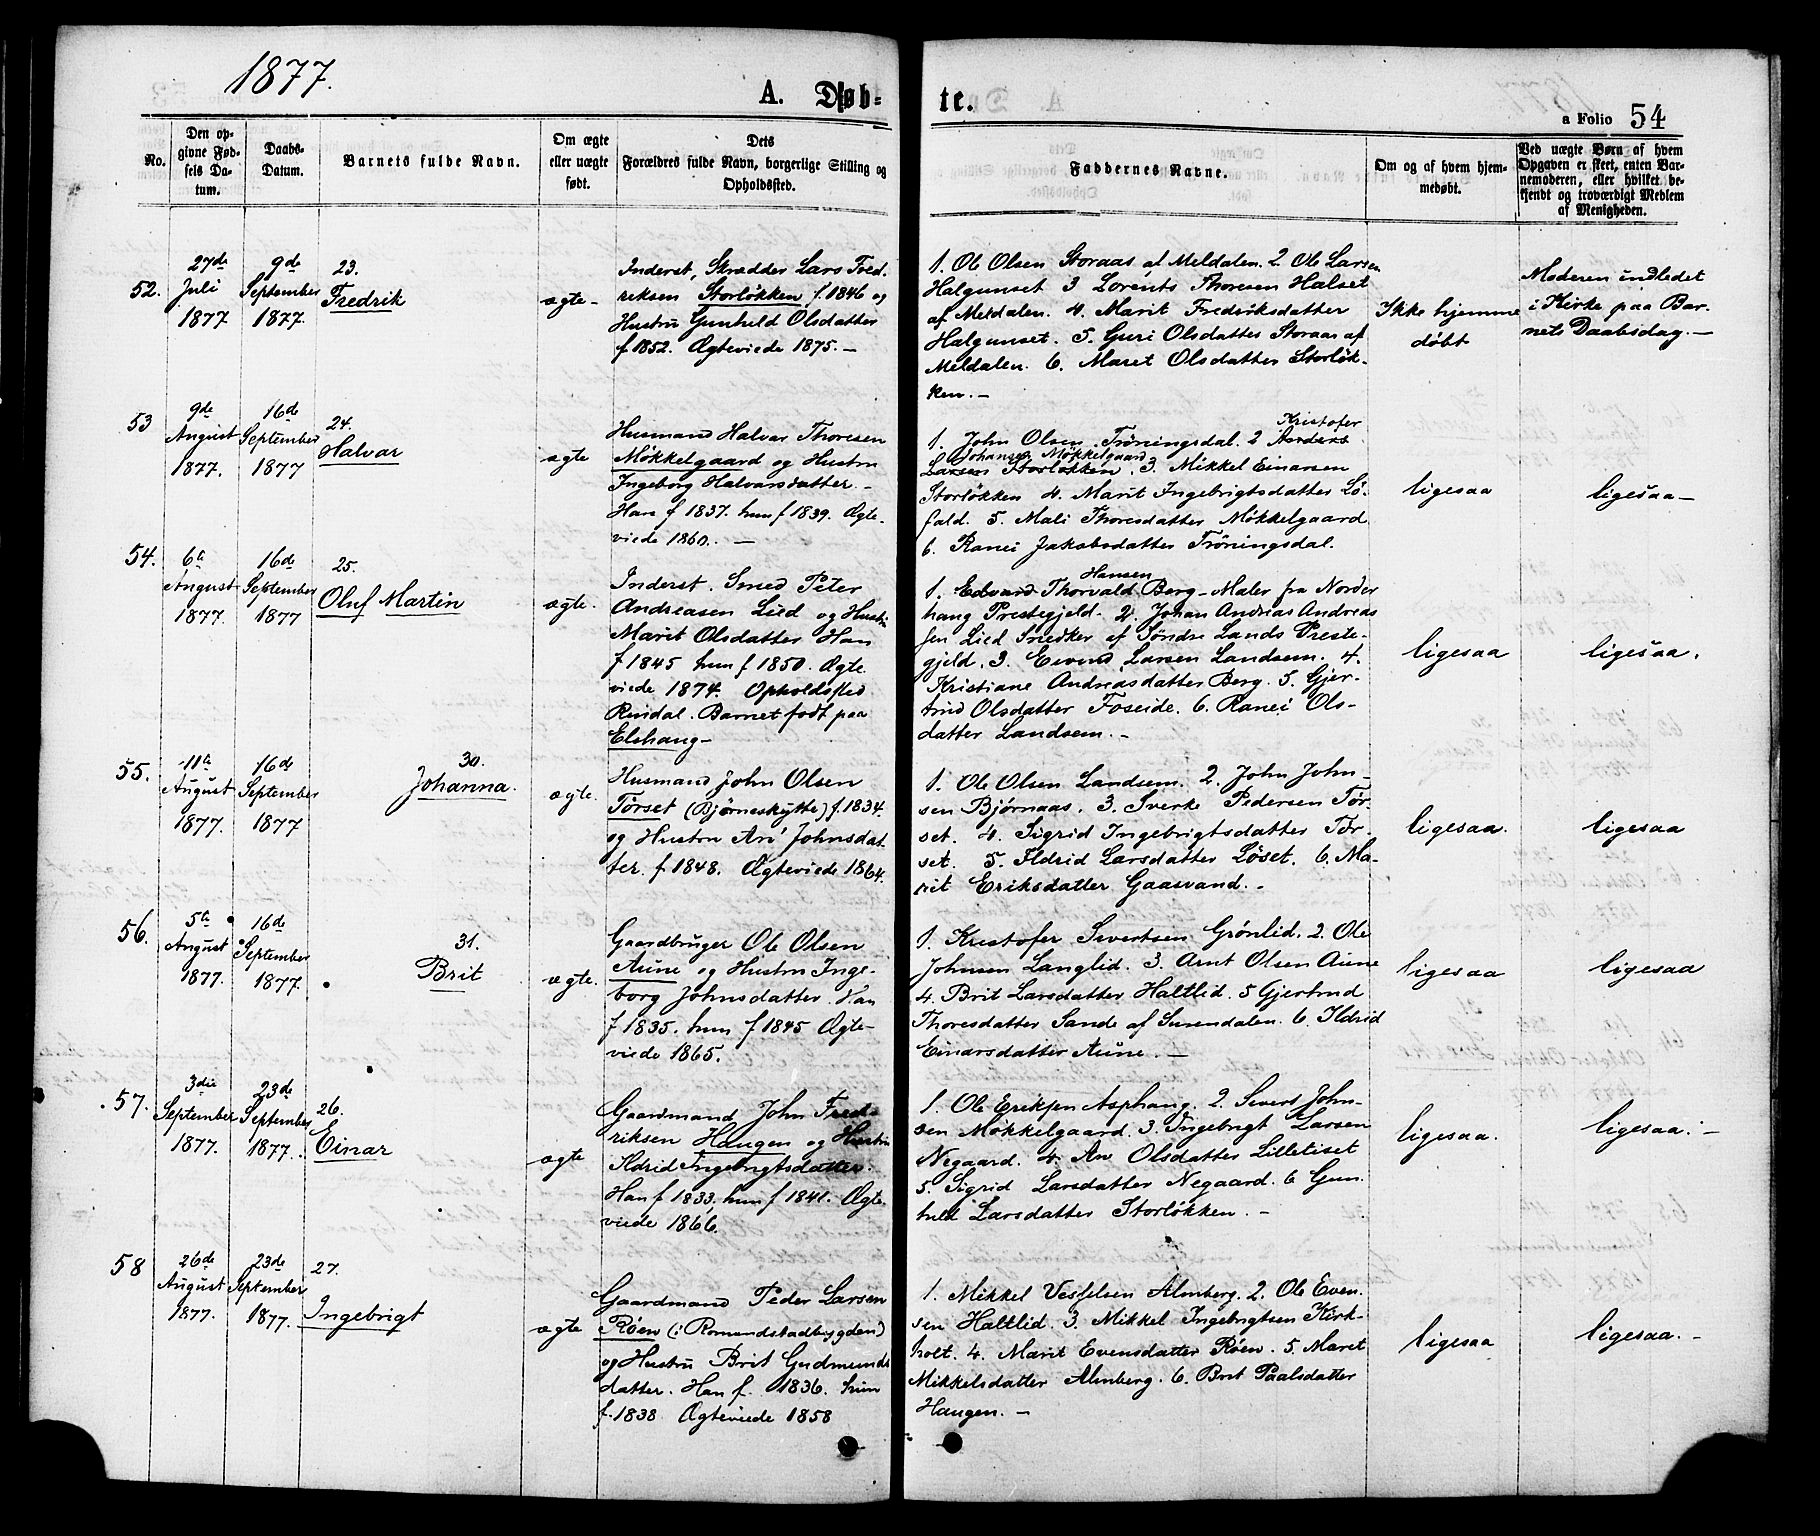 1877.
A. Døb-
te.
a Folio 54
No.
Den op-
givne Fød-
sels Da-
tum.
Daabs-
Datum.
Barnets fulde Navn.
Om ægte
eller uægte
født.
Dets
Forældres fulde Navn, borgerlige Stilling og
Opholdssted.
Faddernes Navne.
Om og af hvem hjem-
medøbt.
Ved uægte Børn af hvem
Opgaven er skeet, enten Bar-
nemoderen, eller hvilket be-
kjendt og troværdigt Medlem
af Menigheden.
52.
27de
Juli
1877
9de
September
1877.
23.
Fredrik
ægte-
Inderst, Skrædder Lars Fred-
riksen Storløkken f. 1846 og
Hustru Gunhild Olsdatter
f 1852. Ægteviede 1875. —
1. Ole Olsen Storaas af Meldalen. 2. Ole Larsen
Halgunset 3 Lorents Thoresen Halset
af Meldalen. 4. Marit Fredriksdatter
Halgunset. 5. Guri Olsdatter Storaas af
Meldalen. 6. Maret Olsdatter Storløk-
ken. —
Ikke hjemme
døbt
Moderen indledet
i Kirke paa Bar-
nets Daabsdag. —
53
9de
August
1877.
16de
September
1877
24.
Halvar
ægte
Husmand Halvar Thoresen
Møkkelgaard og Hustru
Ingeborg Halvarsdatter. -
Han f 1837. hun f 1839. Ægte-
viede 1860. —
Kristofer
1. John Olsen Trøningsdal. 2 Anders
Johansen Møkkelgaard
Larsen Storløkken. 3. Mikkel Einarsen
Storløkken 4. Marit Ingebrigtsdatter Lø-
fald. 5. Mali Thoresdatter Møkkelgaard
6. Ranei Jakobsdatter Trøningsdal.
ligesaa
ligesaa —
54.
6te
August
1877.
16de
September
1877
25.
Oluf Martin
ægte.
Inderst. Smed Peter
Andreasen Lied og Hustru
Marit Olsdatter Han
f 1845 hun f 1850. Ægte
viede 1874. Opholdsted
Rindal. Barnet født paa
Elshaug -
Hansen
1. Edvard Thorvald Berg - Maler fra Norder
haug Prestegjeld. 2. Johan Andreas Andreas
sen Lied Snedker af Søndre Lands Preste-
gjeld. 3. Eivind Larsen Landsem. 4.
Kristiane Andreasdatter Berg. 5. Gjer-
trud Olsdatter Foseide. 6. Ranei Ols-
datter Landsem. -
ligesaa
ligesaa.
55.
11te
August
1877.
16de
September
1877
30.
Johanna.
ægte.
Husmand John Olsen
Tørset (Bjørneskytte) f. 1834.
og Hustru Ari Johnsdat
ter. f. 1848. Ægteviede 1864.
1. Ole Olsen Landsem. 2. John John-
sen Bjørnaas. 3. Sverke Pedersen Tør-
set. 4. Sigrid Ingebrigtsdatter Tør-
set. 5. Ildrid Larsdatter Løset. 6. Ma-
rit Eriksdatter Gaasvand. -
ligesaa.
ligesaa
56.
5te
August
1877.
16de
September
1877.
31.
Brit
ægte.
Gaardbruger Ole Olsen
Aune og Hustru Inge-
borg Johnsdatter. Han
f 1835. hun f 1845 Ægte-
viede 1865.
1. Kristofer Sivertsen Grønlid. 2. Ole
Johnsen Langlid. 3. Arnt Olsen Aune
4. Brit Larsdatter Haltlid. 5 Gjertrud
Thoresdatter Sande af Surendalen. 6. Ildrid
Einarsdatter Aune. —
ligesaa
ligesaa
57.
3die
September
1877.
23de
September
1877.
26.
Einar
ægte
Gaardmand John Fred-
riksen Haugen og Hustru
Ildrid Ingebrigtsdatter.
Han f 1833, hun f 1841. Ægte-
viede 1866.
1. Ole Eriksen Asphaug. 2. Sivert John-
sen Møkkelgaard. 3. Ingebrigt Larsen
Negaard. 4. An Olsdatter Lilletiset
5. Sigrid Larsdatter Negaard. 6 Gun-
hild Larsdatter Storløkken. -
ligesaa.
ligesaa. -
58
26de
August
1877.
23de
September
1877.
27.
Ingebrigt
ægte
Gaardmand Peder Larsen
Røen (i Romundstadbygden)
og Hustru Brit Gudmunds
datter. Han f. 1836. hun
f. 1838 Ægteviede 1858
1. Mikkel Vesselsen Almberg. 2. Ole Even-
sen Haltlid. 3. Mikkel Ingebrigtsen Kirk-
holt. 4. Marit Evensdatter Røen. 5. Maret
Mikkelsdatter Almberg. 6. Brit Paalsdatter
Haugen. —
ligesaa
ligesaa. -